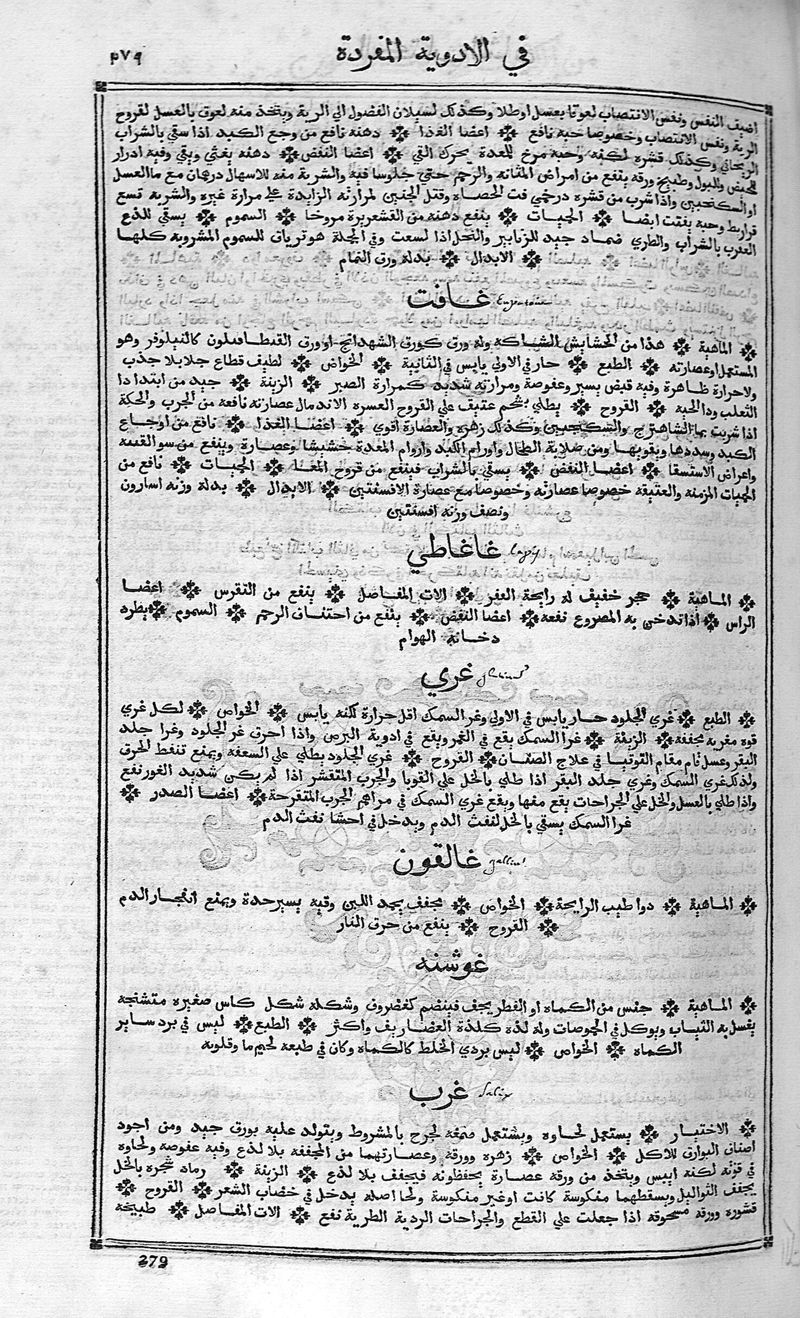 في الادوية المفردة ٢٧٩
لضيق النفس ونفس الانتصاب لعوقا بعسل اوطلا وكذلك لسيلان الفضول الي الرية ويتخذ منه لعوق بالعسل لقروح
الرية ونفس الانتصاب وخصوصا حبه نافع ❊ اعضا الغذا ❊ دهنه نافع من وجع الكبد اذا سقي بالشراب
الريحاني وكذلك قشره لكنه وحبه مرخ للمعدة يحرك القي ❊ اعضا النفض ❊ دهنه يغثي ويقي وفيه ادرار
للحيض والبول وطبيخ ورقه ينفع من امراض المثانه والرحم حتي جلوسا فيه والشربة منه للاسهال درهمان مع ما العسل
او السكنجبين واذا شرب من قشره درخمي فت الحصاه وقتل الجنين لمرارته الزايدة علي مرارة غيره والشربة تسع
قراريط وحبه يفتت ايضا ❊ الحميات ❊ ينفع دهنه من القشعريرة مروخا ❊ السموم ❊ يسقي للذع
العقرب بالشراب والطري ضماد جيد للزنابير والنحل اذا لسعت وفي الجملة هو ترياق للسموم المشروبة كلها
❊ الابدال ❊ بدله ورق النمام
غافت
❊ الماهية ❊ هذا من الحشايش الشاكة وله ورق كورق الشهدانج او ورق القنطافلون كالنيلوفر وهو
المستعمل او عصارته ❊ الطبع ❊ حار في الاولي يابس في الثانية ❊ الخواص ❊ لطيف قطاع جلا بلا جذب
ولا حرارة ظاهرة وفيه قبض يسير وعفوصة ومرارته شديدة كمرارة الصبر ❊ الزينة ❊ جيد من ابتدا دا
الثعلب ودا الحية ❊ القروح ❊ يطلي بشحم عتيق علي القروح العسرة الاندمال عصارته نافعة من الجرب والحكة
اذا شربت بما الشاهترج والسكنجبين وكذلك زهره والعصارة اقوي ❊ اعضا الغذا ❊ نافع من اوجاع
الكبد وسددها ويقويها ومن صلابة الطحال واورام الكبد واورام المعدة حشيشا وعصارة وينفع من سو القنية
واعراض الاستسقا ❊ اعضا النفض ❊ يسقي بالشراب فينفع من قروح المعا ❊ الحميات ❊ نافع من
الحميات المزمنة والعتيقة خصوصا عصارته وخصوصا مع عصارة الافسنتين ❊ الابدال ❊ بدله وزنه اسارون
ونصف وزنه افسنتين
غاغاطي
❊ الماهية ❊ حجر خفيف له رايحة القفر ❊ الات المفاصل ❊ ينفع من النقرس ❊ اعضا
الراس ❊ اذا تدخن به المصروع نفعه ❊ اعضا النفض ❊ ينفع من اختناق الرحم ❊ السموم ❊ يطرد
دخانه الهوام
غري
❊ الطبع ❊ غري الجلود حار يابس في الاولي وغر السمك اقل حرارة لكنه يابس ❊ الخواص ❊ لكل غري
قوة مغرية مجففة ❊ الزينة ❊ غرا السمك يقع في الغمر ويقع في ادوية البرص واذا احرق غر الجلود وغرا جلد
البقر وغسل قام مقام التوتيا في علاج ❊ القروح ❊ غري الجلود يطلي علي السعفه ويمنع تنفط الحرق
ولذلك غري السمك وغري جلد البقر اذا طلي بالخل علي القوبا والجرب المتقشر اذا لم يكن شديد الغور نفع
واذا طلي بالعسل والخل علي الجراحات نفعها ويقع غري السمك في مراهم الجرب المتقرحة ❊ اعضا الصدر ❊
غرا السمك يسقي بالخل لنفث الدم ويدخل في احشا نفث الدم
غالقون
❊ الماهية ❊ دوا طيب الرايحة ❊ الخواص ❊ مجفف يجمد اللبن وفيه يسير حدة ويمنع انفجار الدم
❊ القروح ❊ ينفع من حرق النار
غوشنه
❊ الماهية ❊ جنس من الكماه او الفطر يجف فينضم كغضروف وشكله شكل كاس صغيره متشنجة
يغسل به الثياب ويوكل في الحموضات وله لذة كلذة الغضاريف واكثر ❊ الطبع ❊ ليس في برد ساير
الكماه ❊ الخواص ❊ ليس بردي الخلط كالكماه وكان في طبعه لحيم ما وقلوية
غرب Salix
❊ الاختيار ❊ يستعمل لحاوه ويستعمل صمغه لجرح بالمشروط ويتولد عليه بورق جيد ومن اجود
اصناف البوارق للاكل ❊ الخواص ❊ زهره وورقه وعصارتهما من المجففة بلا لذع وفيه عفوصة ولحاوه
في قوته لكنه ايبس ويتخذ من ورقه عصارة يحفظونه فيجفف بلا لذع ❊ الزينة ❊ رماد شجره بالخل
يجفف الثواليل ويسقطهما منكوسة كانت او غير منكوسة ولحا اصله يدخل في خضاب الشعر ❊ القروح ❊
قشوره وورقه مسحوقة اذا جعلت علي القطع والجراحات الردية الطرية نفع ❊ الات المفاصل ❊ طبيخه
279